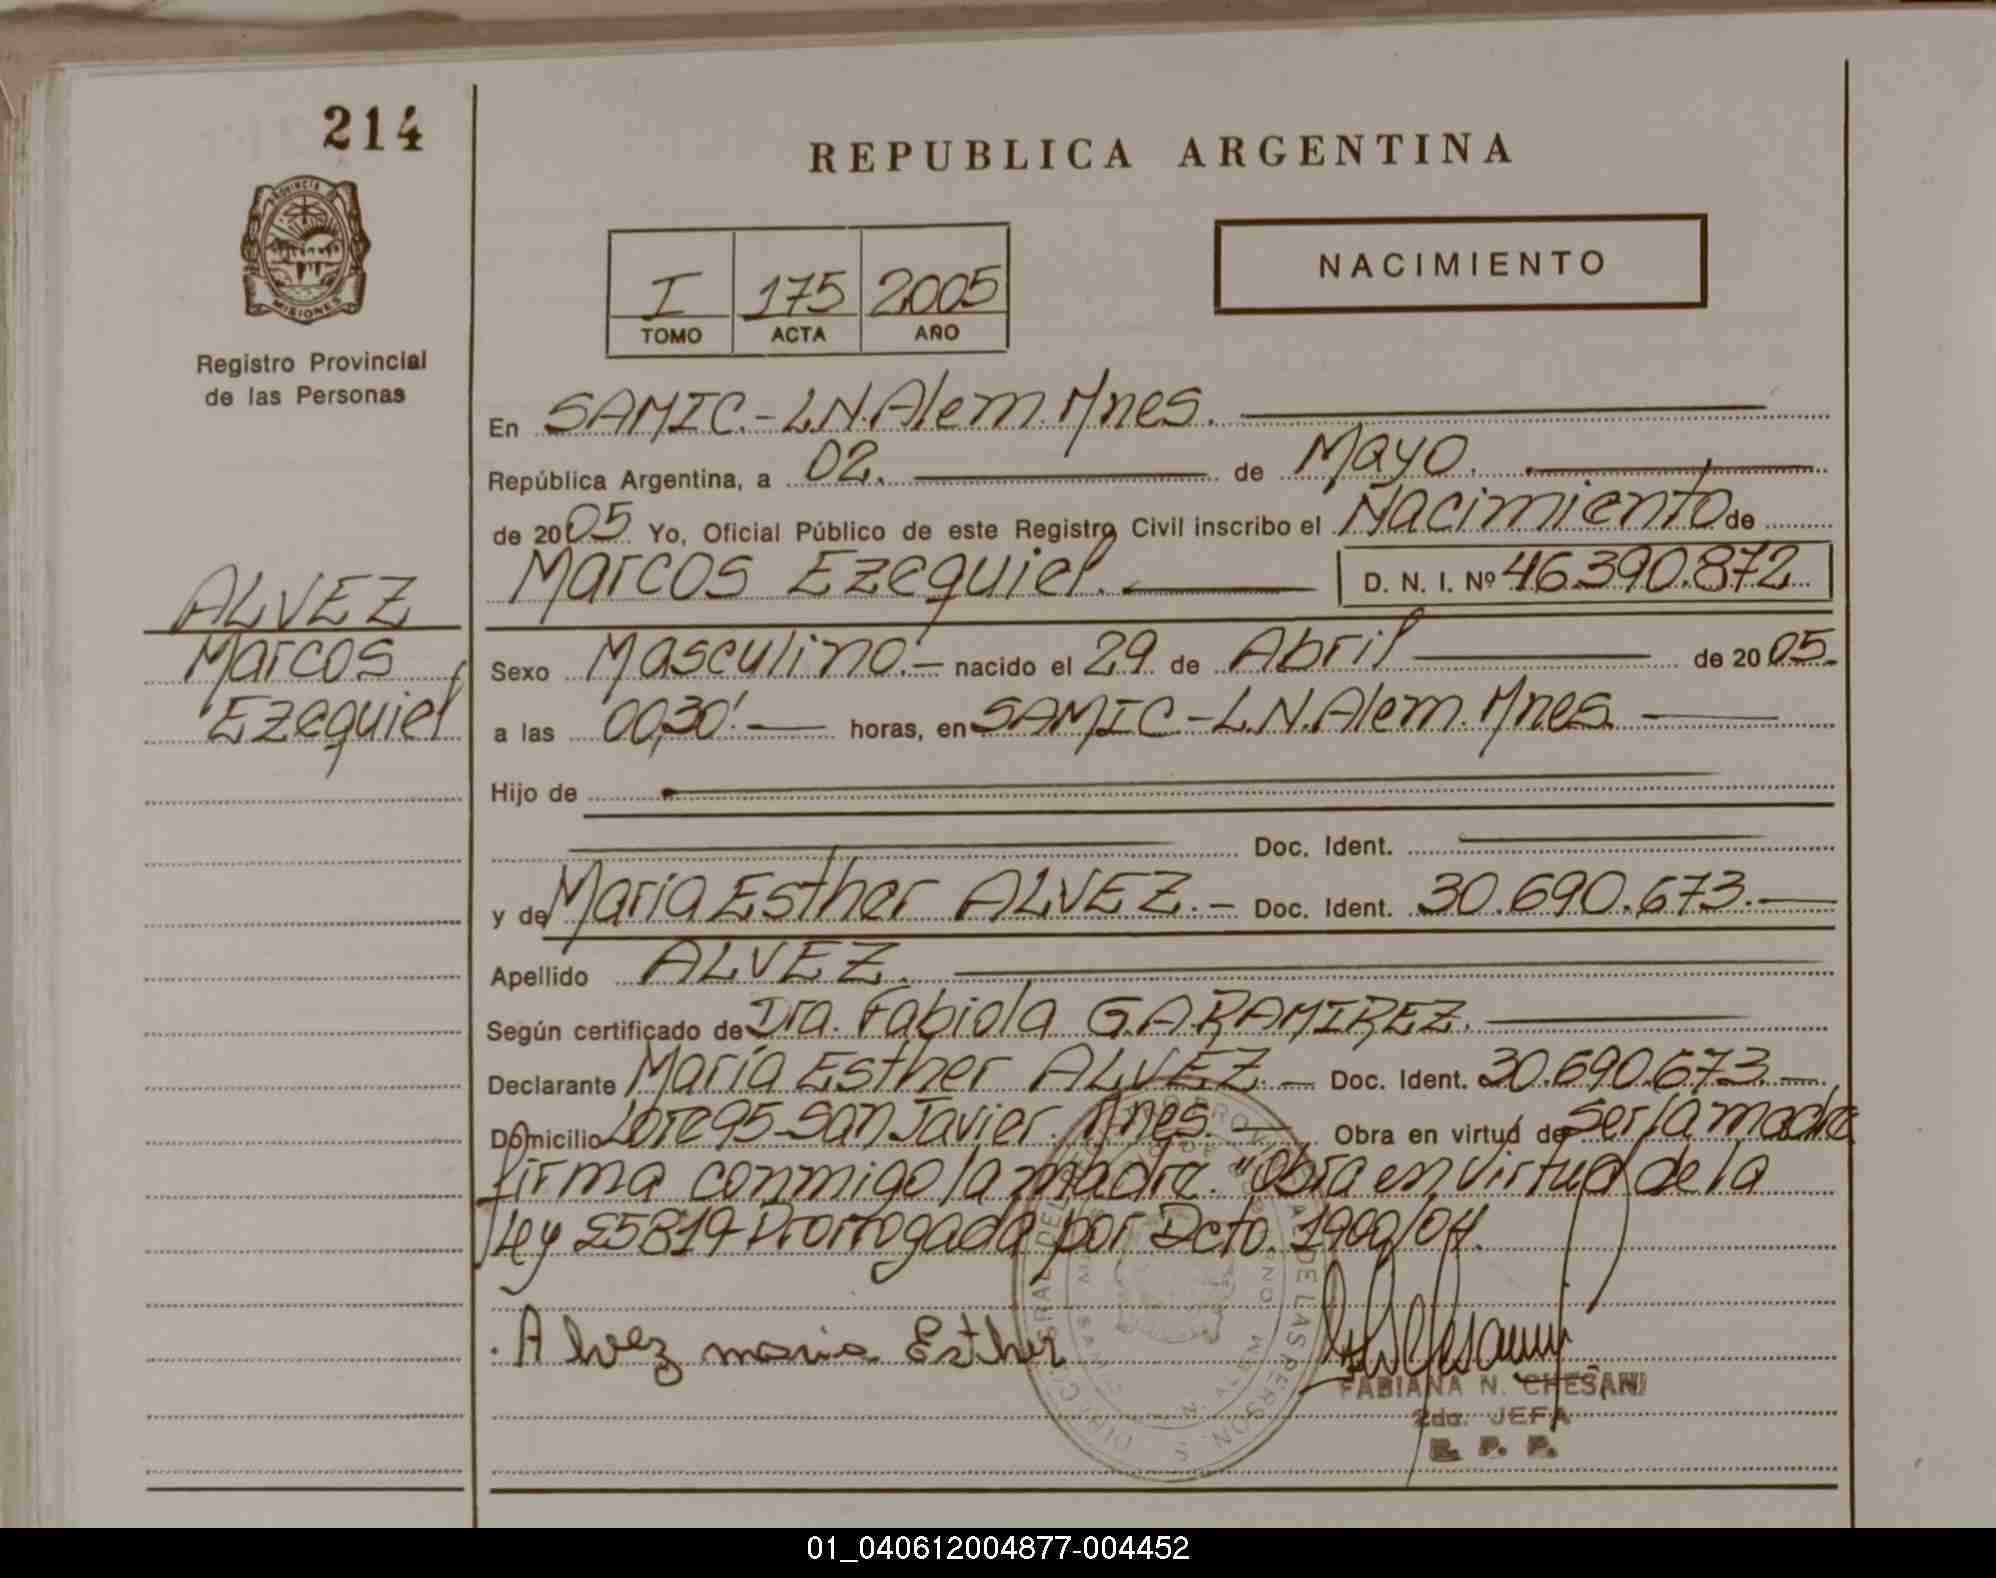 214
REPUBLICA ARGENTINA
PROVINCIA
MISIONES
Registro Provincial
de las Personas
I 175 2005
TOMO ACTA AÑO
NACIMIENTO
En SAMIC.-L.N.Alem.Mnes.
República Argentina, a 02. de Mayo.
de 2005 Yo, Oficial Público de este Registro Civil inscribo el Nacimiento de
Marcos Ezequiel. D. N. I. Nº 46.390.872
ALVEZ
Marcos
Ezequiel
Sexo Masculino.- nacido el 29 de Abril de 2005.
a las 00,30' horas, en SAMIC-L.N.Alem.Mnes.
Hijo de
Doc. Ident.
y de María Esther ALVEZ.- Doc. Ident. 30.690.673.
Apellido ALVEZ.
Según certificado de Dra. Fabiola G.A.RAMIREZ.
Declarante María Esther ALVEZ.- Doc. Ident. 30.690.673.-
Domicilio Lote 95-San Javier. Mnes.- Obra en virtud de Ser la madre
firma conmigo la madre. "Obra en virtud de la
Ley 25819 Prorrogada por Dcto. 1900/04.
Alvez maria Esther
FABIANA N. CHESANI
2da. JEFA
R. P. P.
01_040612004877-004452